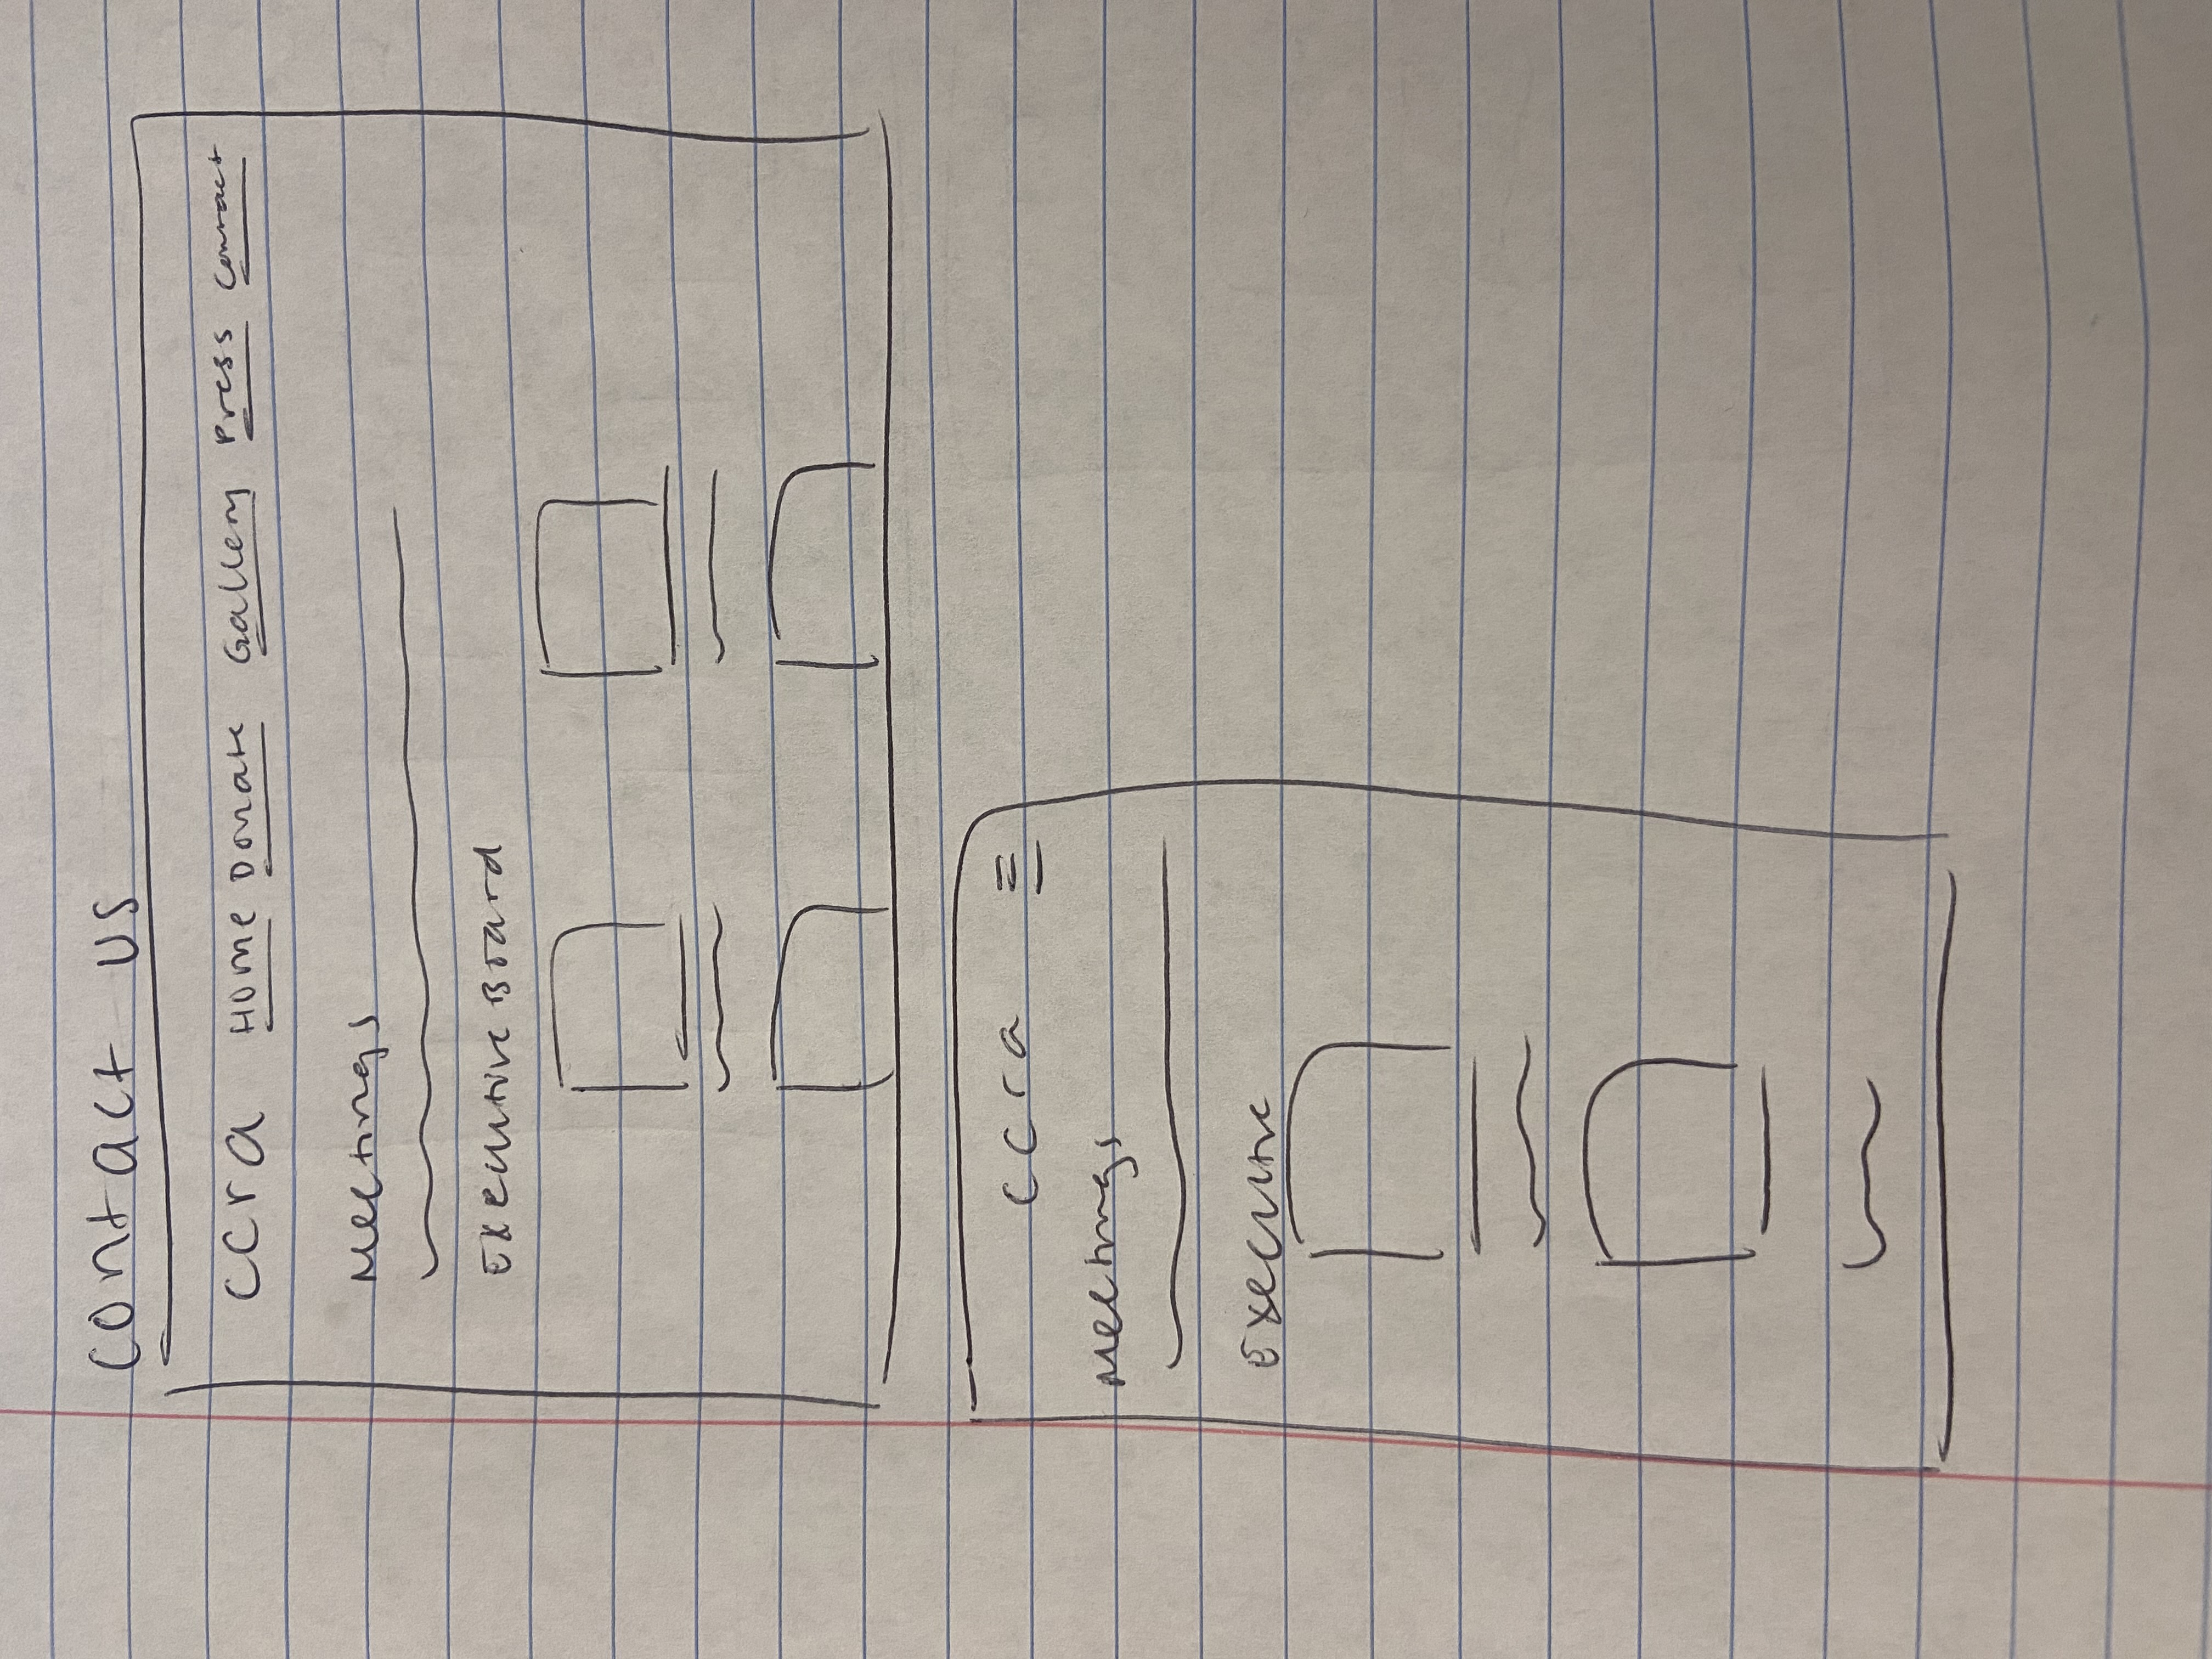 Contact us
ccra Home Donate Gallery Press Contact
Meetings
Executive Board
ccra
Meetings
Executive